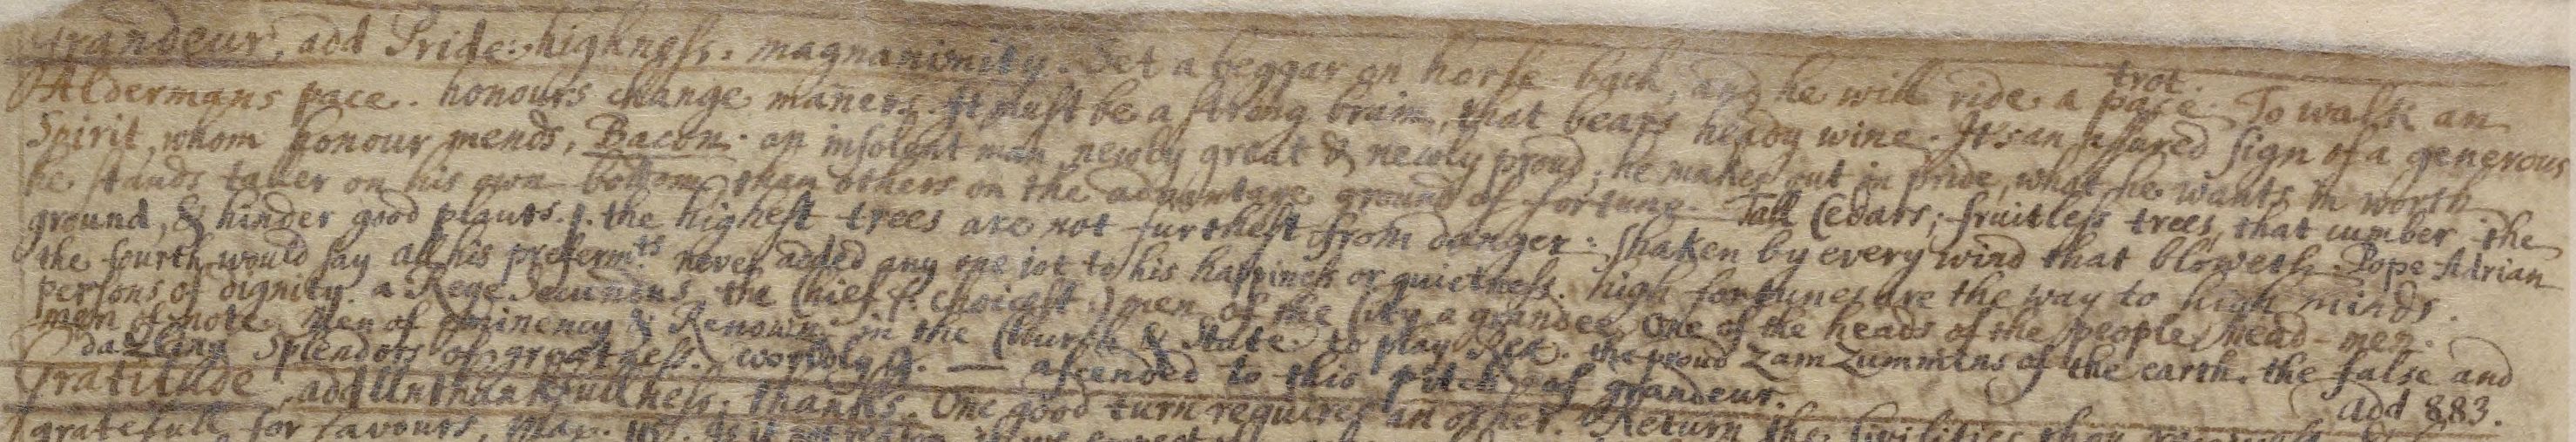 Grandeur, add Pride: highness: magnanimity. Set a beggar on horse back, and he will ride a pace trot. To walk an
Aldermans pace. honours change maners. It must be a strong brain, that bears heady wine. It's an assured sign of a generous
Spirit, whom honour mends, Bacon. an insolent man newly great & newly proud; he makes out in pride, what he wants in worth
he stands taller on his own bottom, than others on the advantage ground of fortune. Tall Cedars; fruitless trees, that cumber the
ground, & hinder good plants. the highest trees are not furthest from danger: shaken by every wind that bloweth. Pope Adrian
the fourth would say all his preferm.ts never added any one iot to his happiness or quietness. high fortunes are the way to high minds.
persons of dignity. a Rege Secundus. the Chief (f. choicest:) men of the City. a grandee. One of the heads of the people. head-men.
men of note. Men of Eminency & Renown in the Church & State. to play Rex. the proud Zamzummins of the earth. the false and
dazling Splendors of greatness. worldly g. — ascended to this pitch of grandeur. add 883.
Gratitude, add Unthankfullness, thanks. One good turn requires an other. Return the Civilities
gratefull for favours,